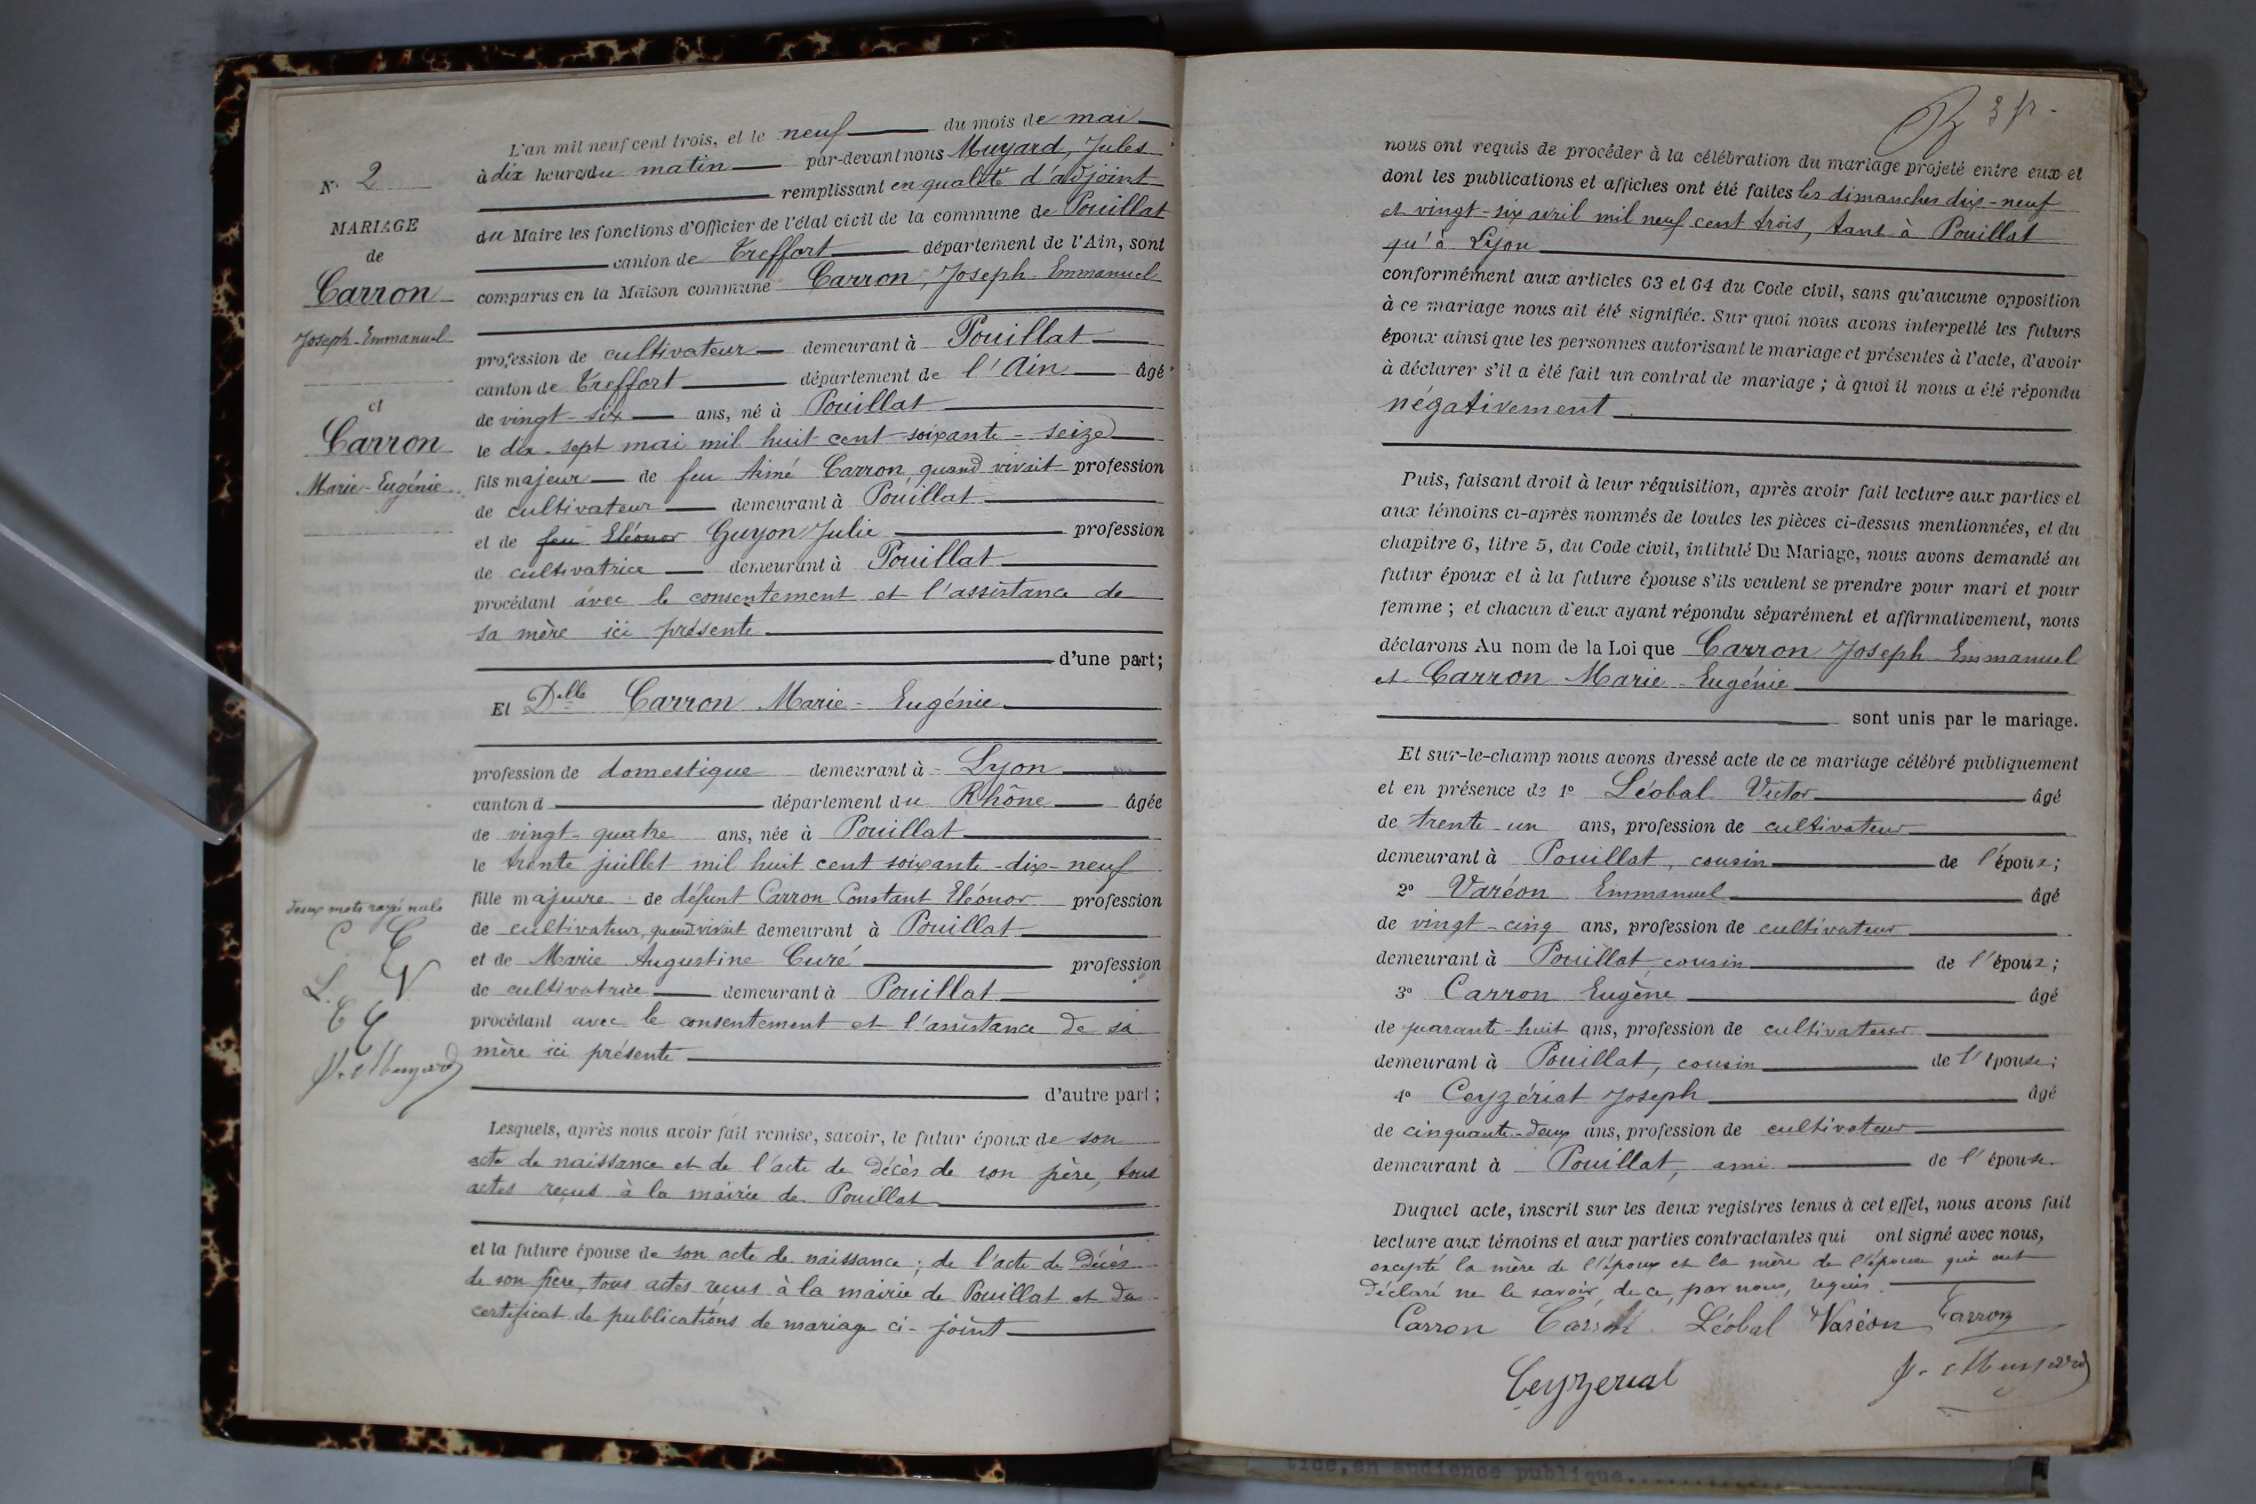 N° 2
MARIAGE
de
Carron
Joseph-Emmanuel
et
Carron
Marie-Eugénie
deux mots rayés nuls
C. C
L. V
E C
J. Muyard
L'an mil neuf cent trois, et le neuf du mois de mai
à dix heures du matin par-devant nous Muyard, Jules
remplissant en qualité d'adjoint
du Maire les fonctions d'Officier de l'état civil de la commune de Pouillat
canton de Treffort département de l'Ain, sont
comparus en la Maison commune Carron, Joseph-Emmanuel
profession de cultivateur demeurant à Pouillat
canton de Treffort département de l'Ain âgé
de vingt-six ans, né à Pouillat
le dix-sept mai mil huit cent soixante-seize
fils majeur de feu Aimé Carron quand vivait profession
de cultivateur demeurant à Pouillat
et de feu Eléonor Guyon Julie profession
de cultivatrice demeurant à Pouillat
procédant avec le consentement et l'assistance de
sa mère ici présente
d'une part;
Et Delle Carron Marie-Eugénie
profession de domestique demeurant à Lyon
canton d département du Rhône âgée
de vingt-quatre ans, née à Pouillat
le trente juillet mil huit cent soixante-dix-neuf
fille majeure de défunt Carron Constant Eléonor profession
de cultivateur, quand vivait demeurant à Pouillat
et de Marie Augustine Curé profession
de cultivatrice demeurant à Pouillat
procédant avec le consentement et l'assistance de sa
mère ici présente
d'autre part;
Lesquels, après nous avoir fait remise, savoir, le futur époux de son
acte de naissance et de l'acte de décès de son père, tous
actes reçus à la mairie de Pouillat
et la future épouse de son acte de naissance; de l'acte de décès
de son père, tous actes reçus à la mairie de Pouillat et du
certificat de publications de mariage ci-joint
3 fr.
nous ont requis de procéder à la célébration du mariage projeté entre eux et
dont les publications et affiches ont été faites les dimanches dix-neuf
et vingt-six avril mil neuf cent trois, tant à Pouillat
qu'à Lyon
conformément aux articles 63 et 64 du Code civil, sans qu'aucune opposition
à ce mariage nous ait été signifiée. Sur quoi nous avons interpellé les futurs
époux ainsi que les personnes autorisant le mariage et présentes à l'acte, d'avoir
à déclarer s'il a été fait un contrat de mariage; à quoi il nous a été répondu
négativement
Puis, faisant droit à leur réquisition, après avoir fait lecture aux parties et
aux témoins ci-après nommés de toutes les pièces ci-dessus mentionnées, et du
chapitre 6, titre 5, du Code civil, intitulé Du Mariage, nous avons demandé au
futur époux et à la future épouse s'ils veulent se prendre pour mari et pour
femme; et chacun d'eux ayant répondu séparément et affirmativement, nous
déclarons Au nom de la Loi que Carron Joseph Emmanuel
et Carron Marie-Eugénie
sont unis par le mariage.
Et sur-le-champ nous avons dressé acte de ce mariage célébré publiquement
et en présence de 1° Léobal Victor âgé
de trente-un ans, profession de cultivateur
demeurant à Pouillat, cousin de l'époux;
2° Varéon Emmanuel âgé
de vingt-cinq ans, profession de cultivateur
demeurant à Pouillat, cousin de l'époux;
3° Carron Eugène âgé
de quarante-huit ans, profession de cultivateur
demeurant à Pouillat, cousin de l'épouse;
4° Ceyzériat Joseph âgé
de cinquante-deux ans, profession de cultivateur
demeurant à Pouillat, ami de l'épouse.
Duquel acte, inscrit sur les deux registres tenus à cet effet, nous avons fait
lecture aux témoins et aux parties contractantes qui ont signé avec nous,
excepté la mère de l'époux et la mère de l'épouse qui ont
déclaré ne le savoir, de ce, par nous, requis.
Carron Carron Léobal Varéon Carron
Ceyzeriat J. Muyard
tice, en audience publique......